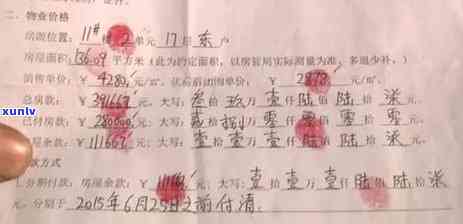 二、物业价格
房源位置: 11# 楼 2 单元 17 层 东 户
房屋面积: 136.09 平方米(此为约定面积,以房管局实际测量为准,多退少补。)
销售单价: ¥ 4280 元/㎡, 单价: ¥ 2878 元/㎡.
总房款: ¥ 391667 元; 大写: 叁 拾 玖 万 壹 仟 陆 佰 陆 拾 柒 元
已付房款: ¥ 280000 元; 大写: 贰 拾 捌 万 零 仟 零 佰 零 拾 零 元
屋余款: ¥ 111667 元; 大写: 壹 拾 壹 万 壹 仟 陆 佰 陆 拾 柒 元.
款方式
1.分期付款: 房屋余款: ¥ 111667 元; 大写: 壹 拾 壹 万 壹 仟 陆 佰 陆 拾 柒
元, 分别于 2015年6月25日之前付清.
xunlv